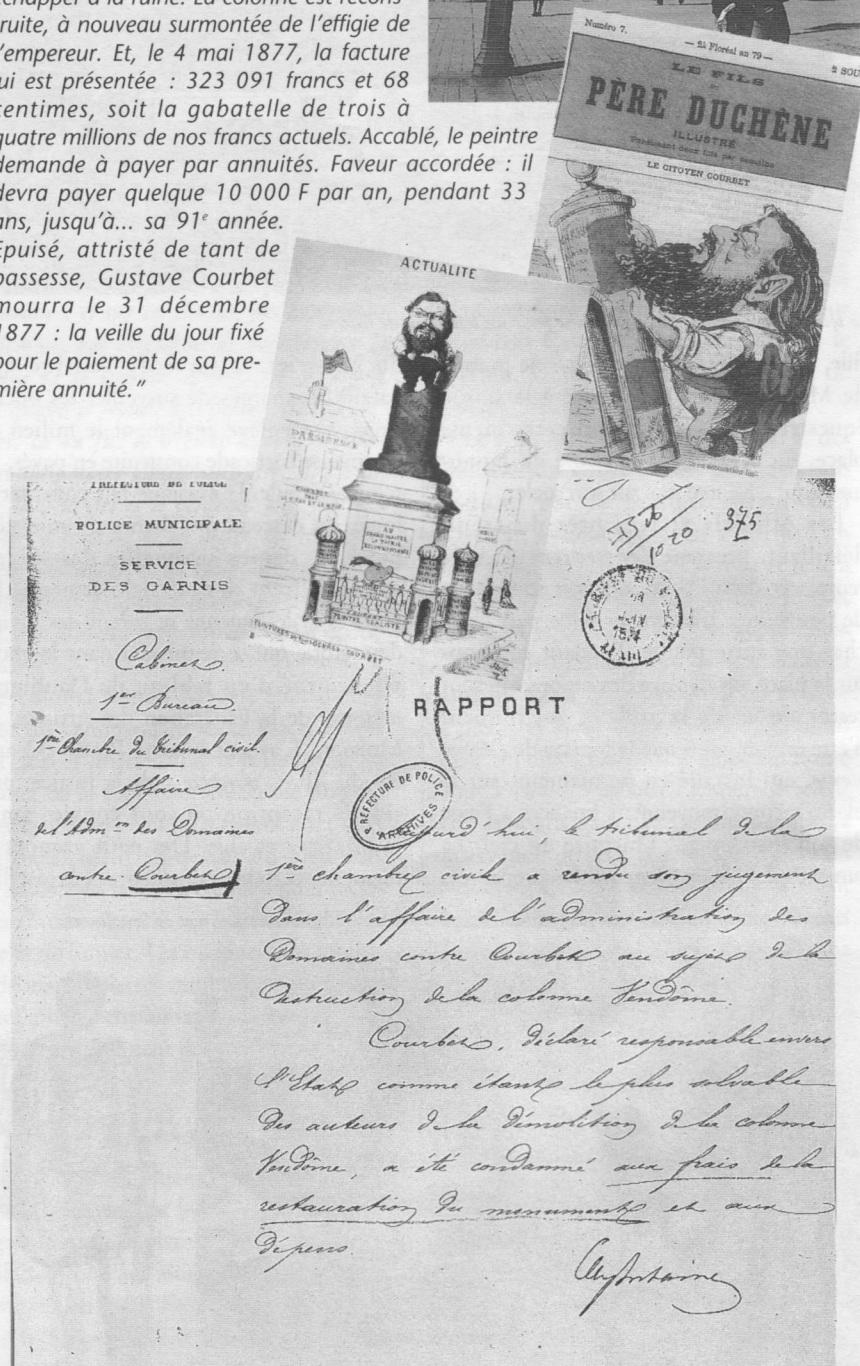 échapper à la ruine. La colonne est recons-
truite, à nouveau surmontée de l'effigie de
l'empereur. Et, le 4 mai 1877, la facture
lui est présentée : 323 091 francs et 68
centimes, soit la gabatelle de trois à
quatre millions de nos francs actuels. Accablé, le peintre
demande à payer par annuités. Faveur accordée : il
devra payer quelque 10 000 F par an, pendant 33
ans, jusqu'à... sa 91e année.
Epuisé, attristé de tant de
bassesse, Gustave Courbet
mourra le 31 décembre
1877 : la veille du jour fixé
pour le paiement de sa pre-
mière annuité."
Numéro 7.
— 21 Floréal an 79 —
2 SOU
LE FILS
PÈRE DUCHÊNE
ILLUSTRÉ
Paraissant deux fois par semaine
LE CITOYEN COURBET
ACTUALITÉ
AU
PEINTRE RÉALISTE
COURBET
PRÉFECTURE DE POLICE
POLICE MUNICIPALE
SERVICE
DES GARNIS
Cabinet.
1er Bureau.
1ère Chambre du Tribunal civil.
Affaire
de l'Admon des Domaines
contre Courbet
1020
375
RAPPORT
PRÉFECTURE DE POLICE
ARCHIVES
Aujourd'hui, le tribunal de la
1ère chambre civile a rendu son jugement
dans l'affaire de l'administration des
Domaines contre Courbet au sujet de la
destruction de la colonne Vendôme.
Courbet, déclaré responsable envers
l'Etat comme étant le plus solvable
des auteurs de la démolition de la colonne
Vendôme, a été condamné aux frais de la
restauration du monument et aux
dépens.